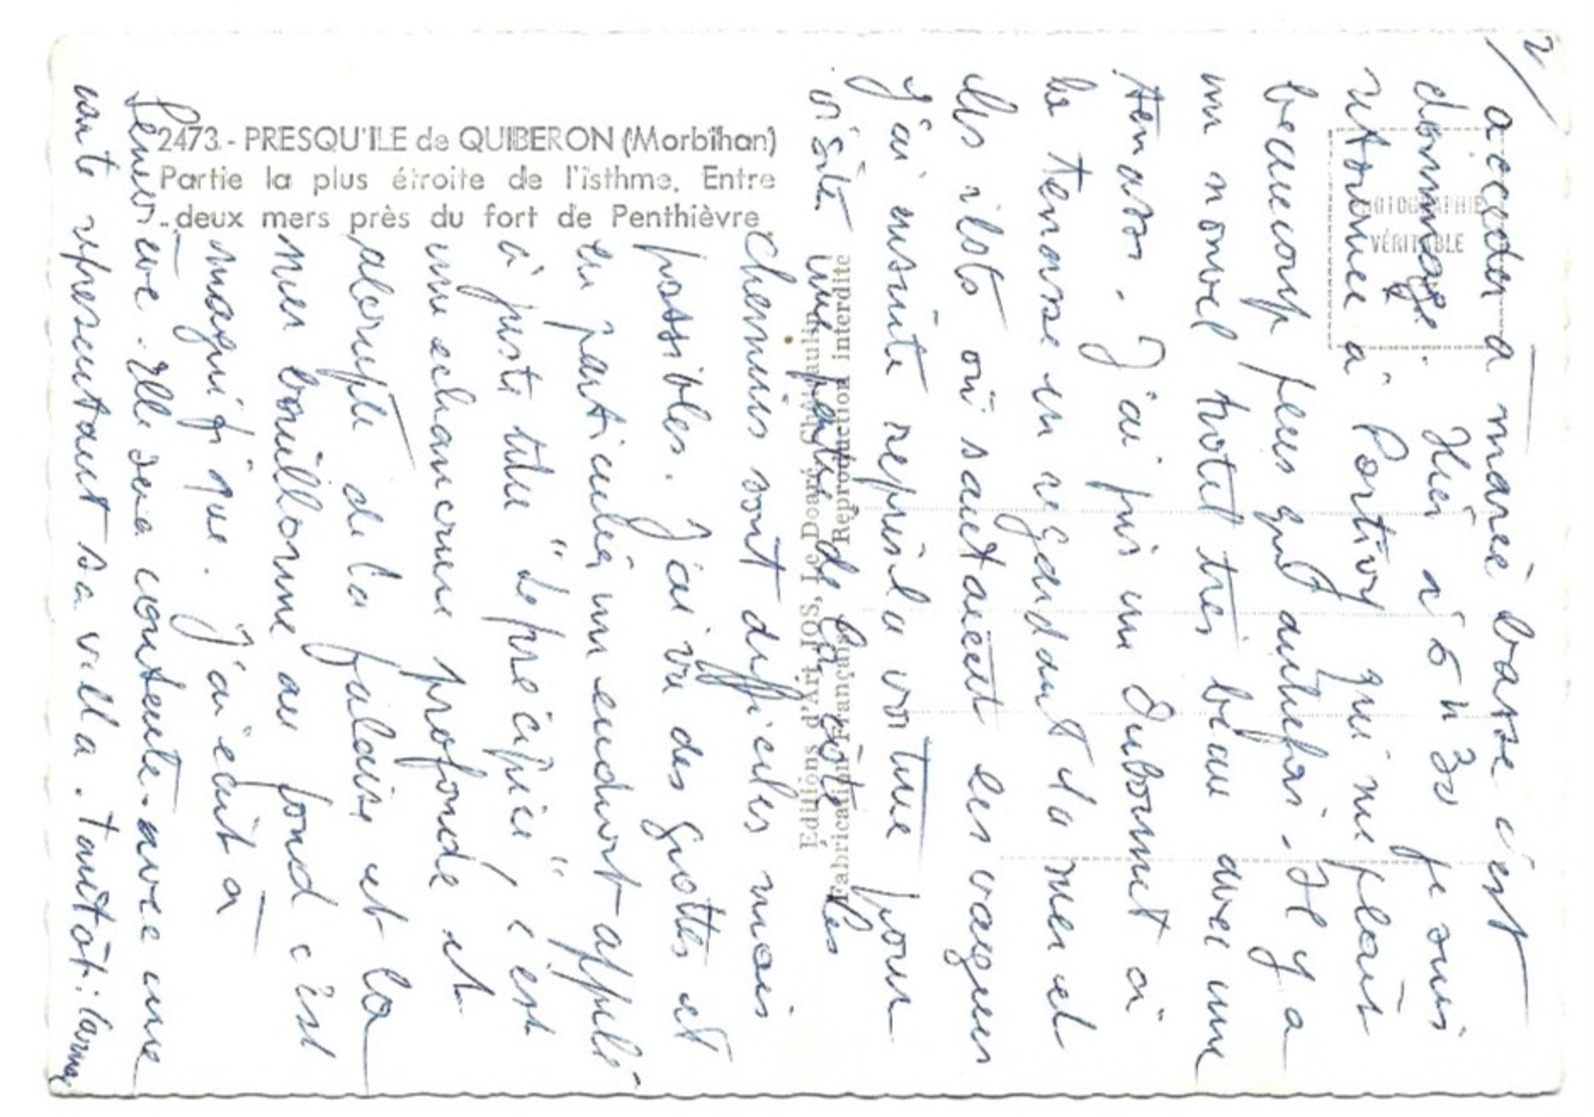 2473. - PRESQU'ILE de QUIBERON (Morbihan)
Partie la plus étroite de l'isthme. Entre
deux mers près du fort de Penthièvre.
PHOTOGRAPHIE
VÉRITABLE
Editions d'Art JOS, Le Doaré, Châteaulin
Fabrication Française Reproduction interdite
2/
acceder a marée basse c'est
dommage. Hier à 5 h 30 je suis
retournée à Portivy qui me plaît
beaucoup plus qu'autrefois. Il y a
un nouvel hotel très beau avec une
terrasse. J'ai pris un Dubonnet à
la terrasse en regardant la mer et
les ilots où sautaient les vagues
J'ai ensuite repris la voiture pour
visiter une partie de la côte les
chemins sont difficiles mais
possibles. J'ai vu des grottes et
en particulier un endroit appelé
à juste titre "le précipice" c'est
une echancrure profonde et
abrupte de la falaise et la
mer bouillonne au fond c'est
magnifique. J'ai écrit à
elle sera contente avec une
carte représentant sa villa. Tantôt